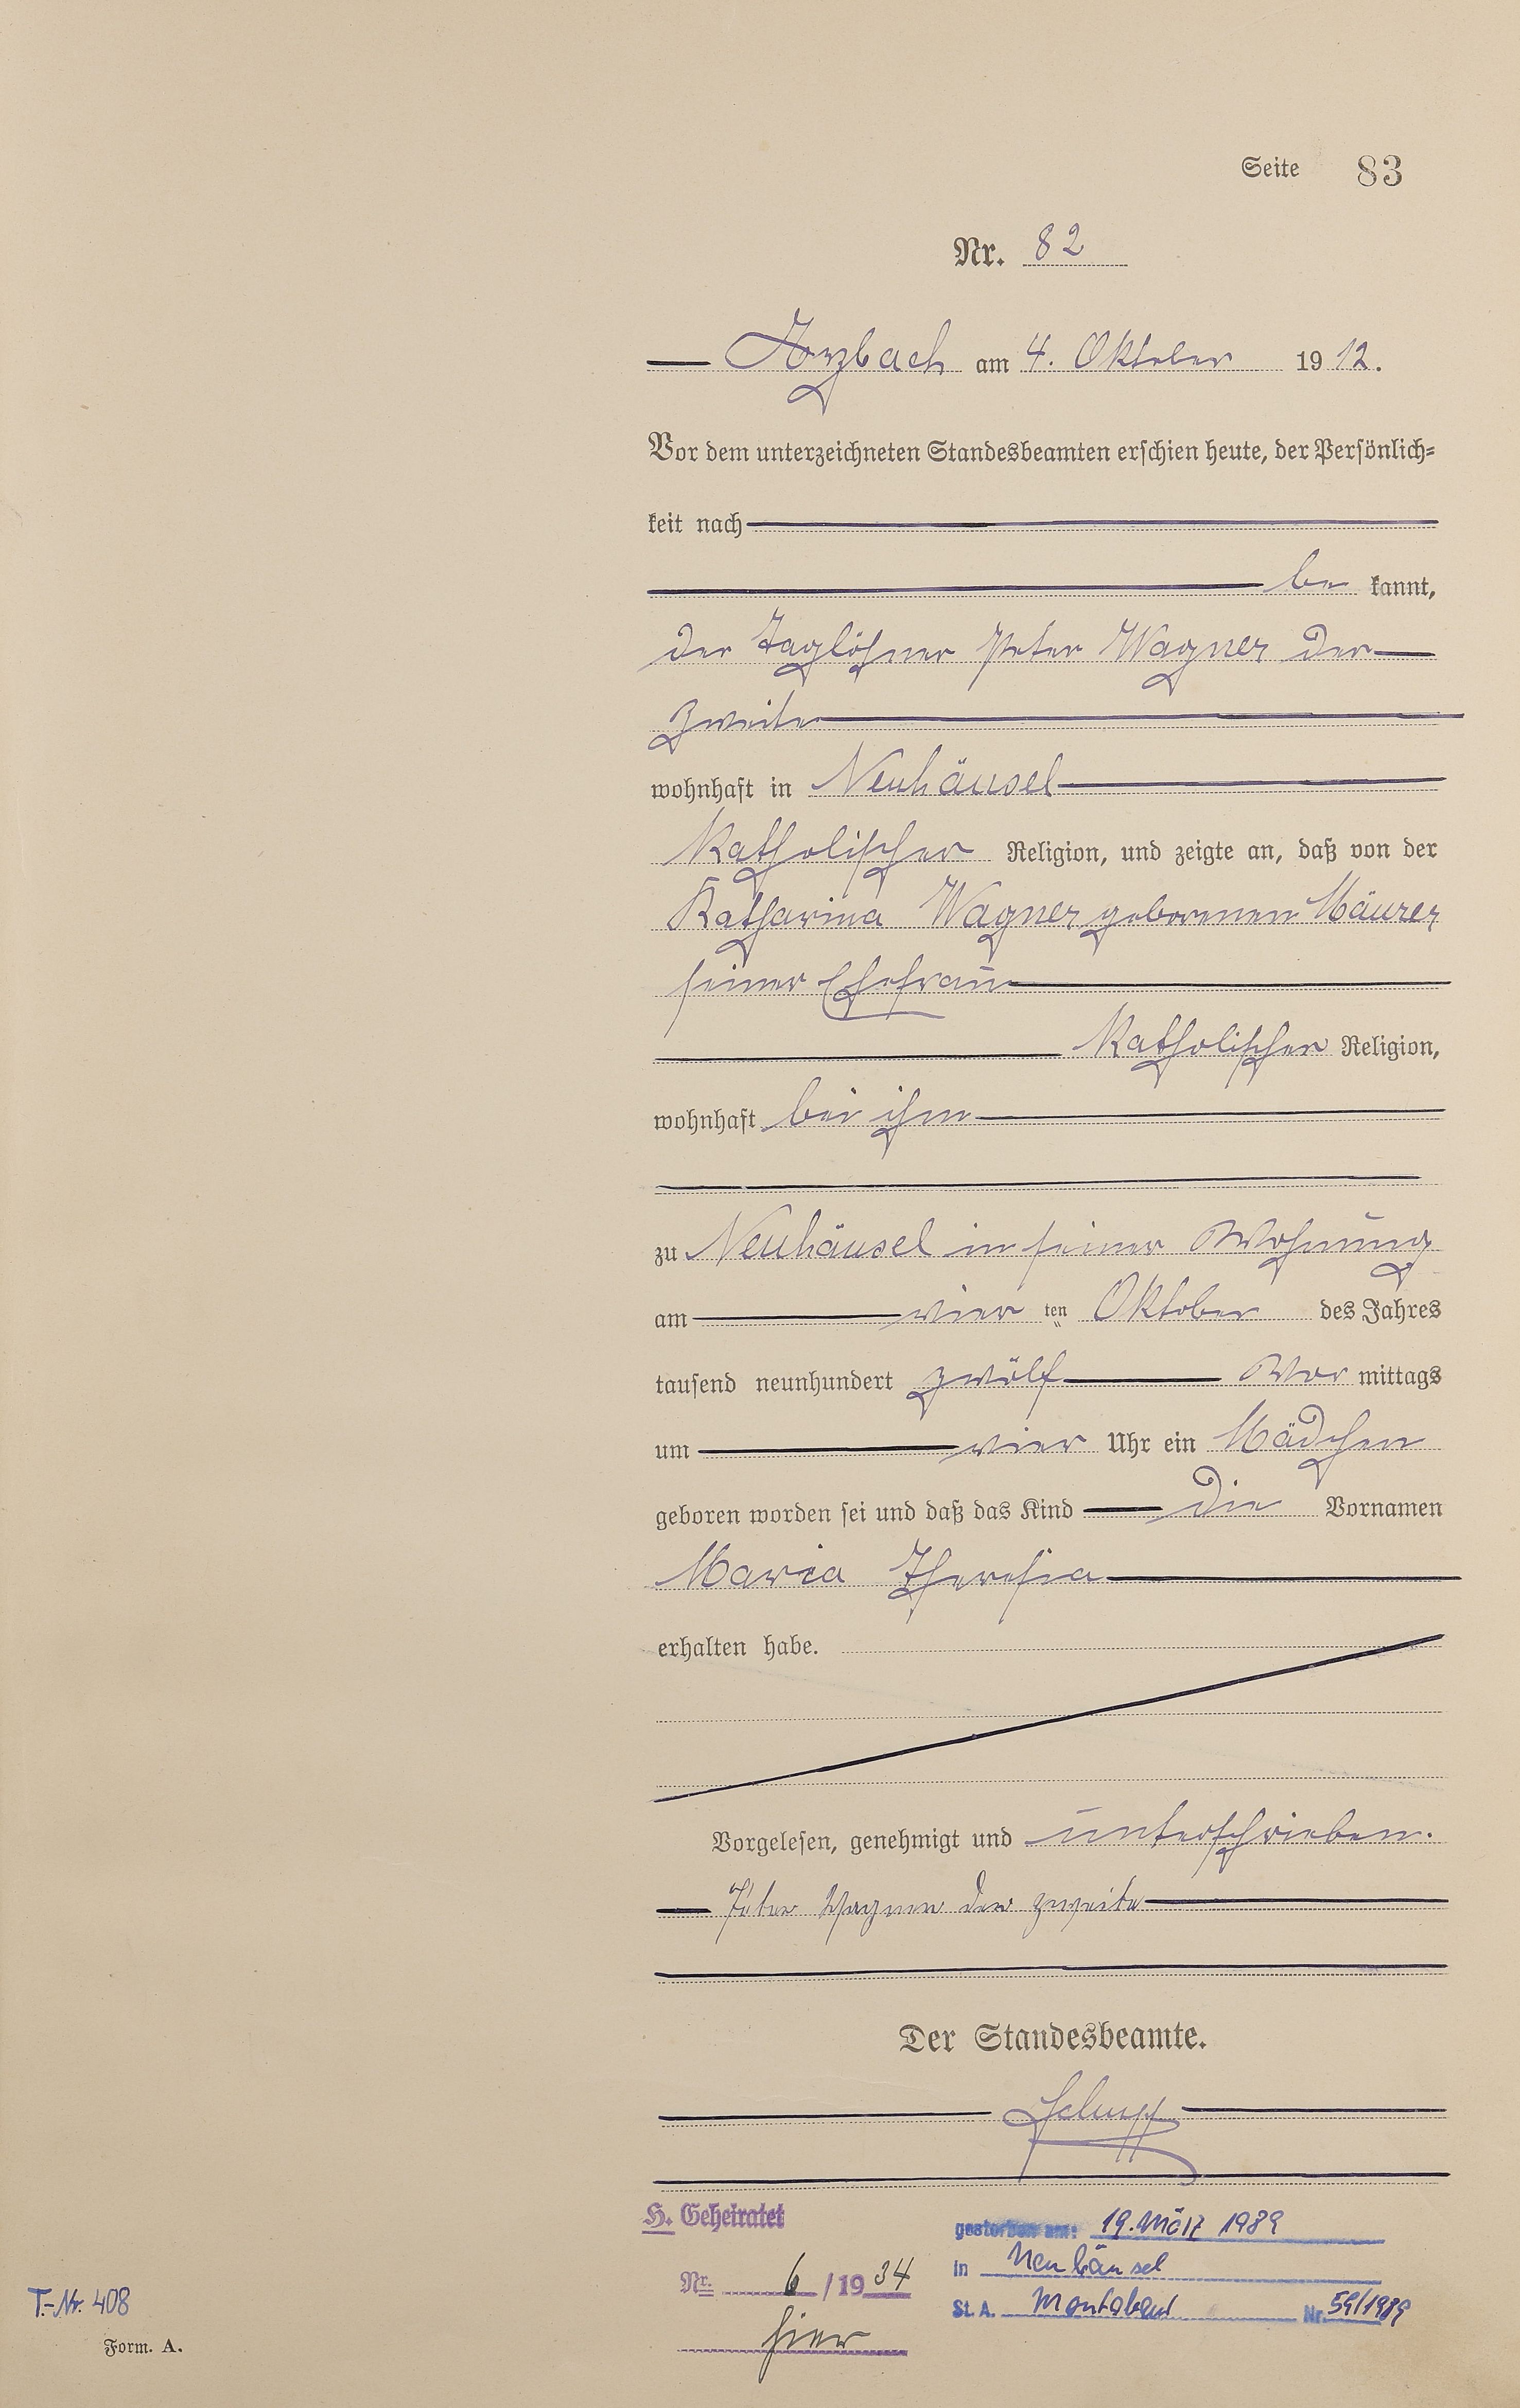 Seite 83
Nr. 82
Horzbach am 4. Oktober 1912.
Vor dem unterzeichneten Standesbeamten erschien heute, der Persönlich-
keit nach
be kannt,
der Taglöhner Peter Wagner der
zweite
wohnhaft in Neuhäusel
katholischer Religion, und zeigte an, daß von der
Katharina Wagner geborenen Mäurer
seiner Ehefrau
katholischer Religion,
wohnhaft bei ihm
zu Neuhäusel in seiner Wohnung
am vier ten Oktober des Jahres
tausend neunhundert zwölf Vor mittags
um vier Uhr ein Mädchen
geboren worden sei und daß das Kind die Vornamen
Maria Theresia
erhalten habe.
Vorgelesen, genehmigt und unterschrieben.
Peter Wagner der zweite
Der Standesbeamte.
Schupp
H. Geheiratet
Nr. 6/1934
hier
gestorben am: 19. März 1989
in Neuhäusel
St. A. Montabaur Nr. 59/1989
T.-Nr. 408
Form. A.